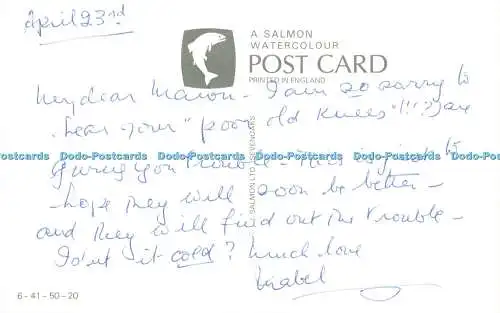 April 23rd
A SALMON
WATERCOLOUR
POST CARD
PRINTED IN ENGLAND
My dear Marion - I am so sorry to
hear your "poor old knees"!!! are
Dodo-Postcards Dodo-Postcards Dodo-Postcards Dodo-Postcards Dodo-Postcards Dodo-Postcards Dodo-Postcards
giving you trouble -
hope they will soon be better -
and they will find out the trouble -
Isn't it cold? Much love
Isabel
J. SALMON LTD. SEVENOAKS ©
6-41-50-20